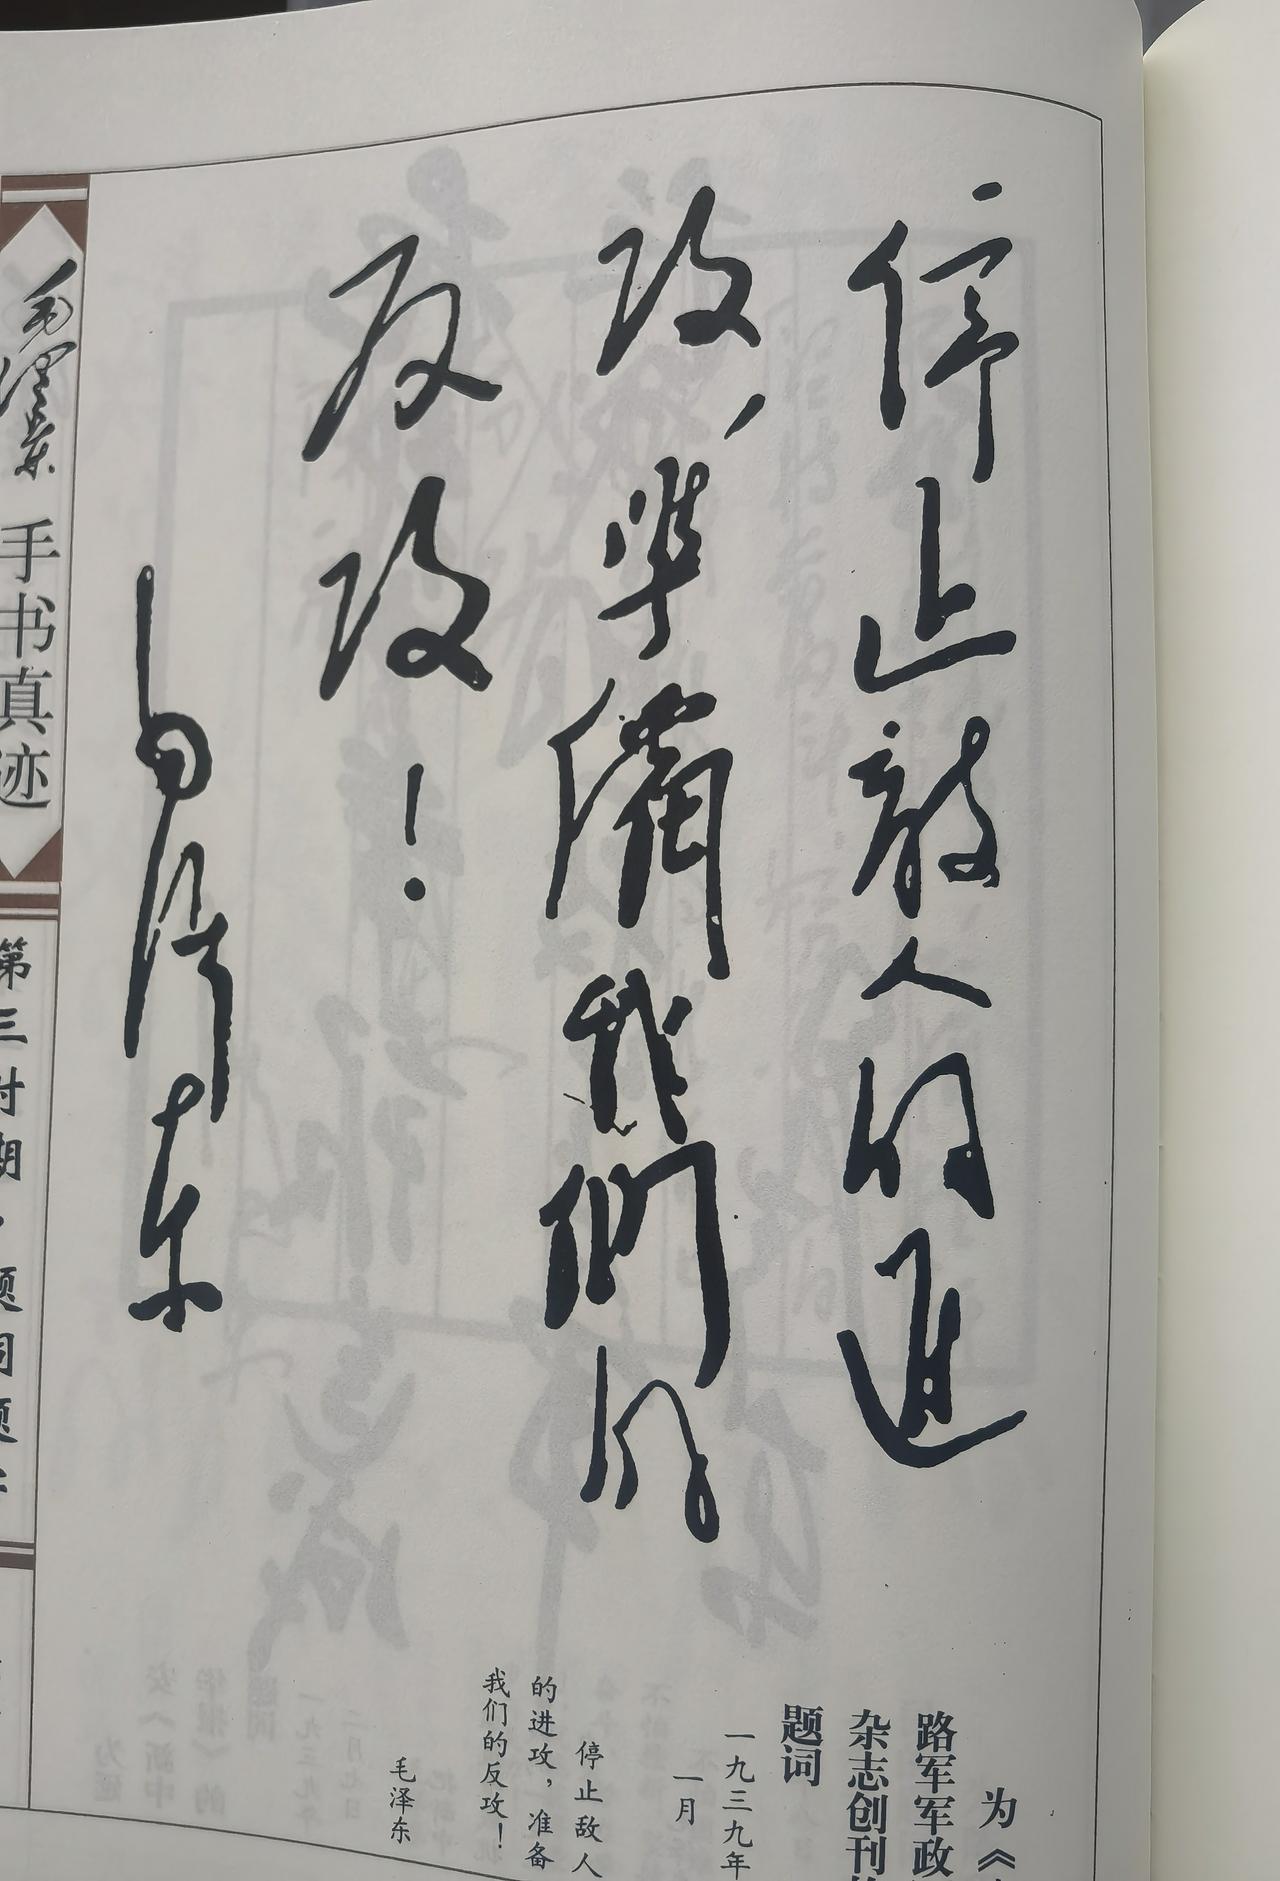 停止敌人的进
攻，準備我們的
反攻！
毛泽东
为《
路军军政
杂志创刊
题词
一九三九年
一月
停止敌人
的进攻，准备
我们的反攻！
毛泽东
毛泽东 手书真迹
第三时期·题词题